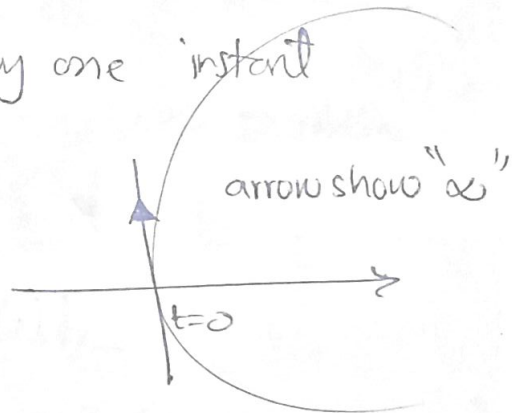 y one instant
arrow show "∝"
t=0